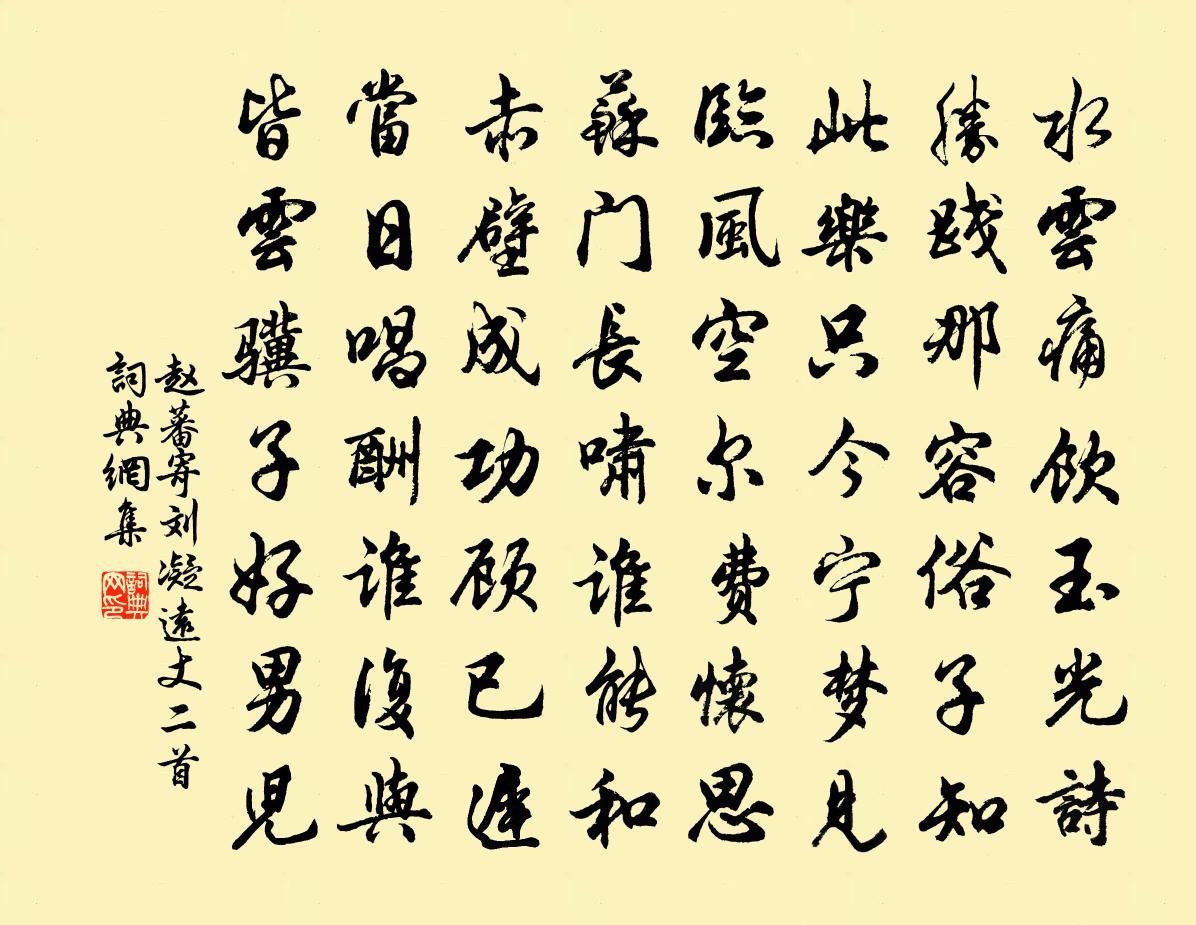 水雲痛飲玉光詩
勝踐那容俗子知
此樂只今宁梦見
臨風空尔費懷思
蘇门長嘯誰能和
赤壁成功顾已遲
當日唱酬誰復與
皆雲驥子好男児
赵蕃寄刘凝遠丈二首
詞典網集
詞典网印